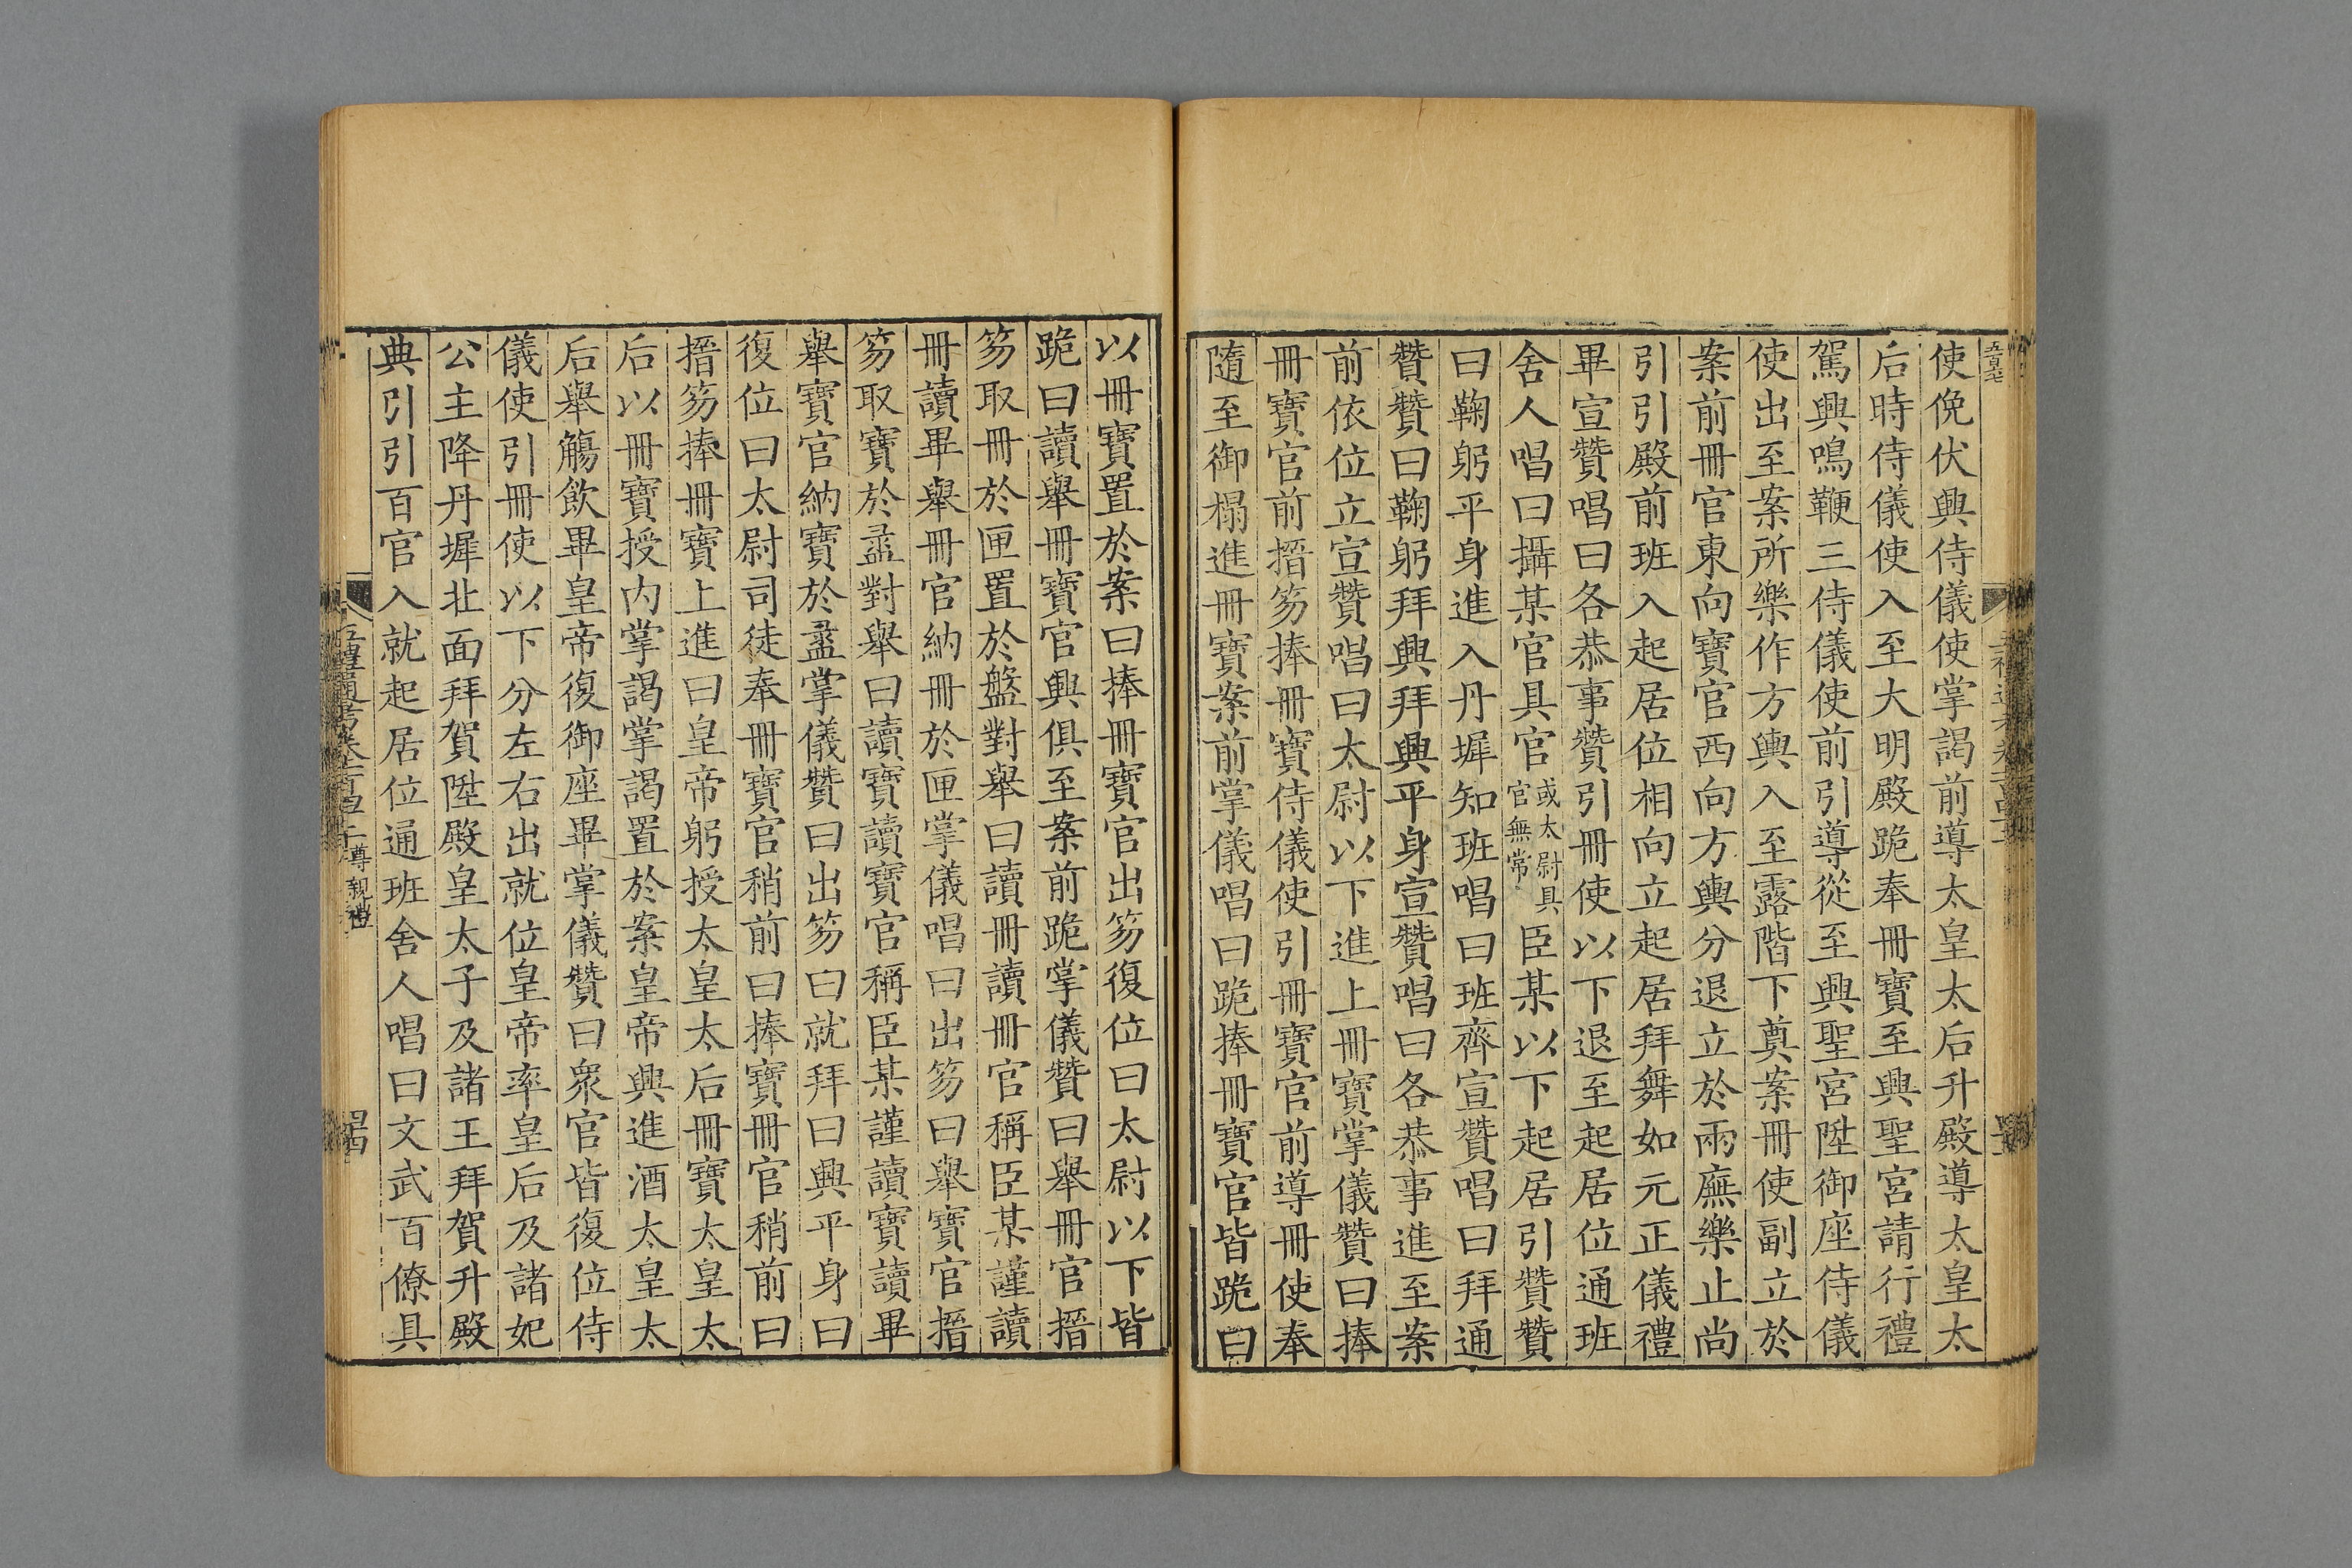 使俛伏興侍儀使掌謁前導太皇太后升殿導太皇太
后時侍儀使入至大明殿跪奉冊寶至興聖宮請行禮
駕興鳴鞭三侍儀使前引導從至興聖宮陞御座侍儀
使出至案所樂作方輿入至露階下奠案冊使副立於
案前冊官東向寶官西向方輿分退立於兩廡樂止尚
引引殿前班入起居位相向立起居拜舞如元正儀禮
畢宣贊唱曰各恭事贊引冊使以下退至起居位通班
舍人唱曰攝某官具官或太尉具官無常臣某以下起居引贊贊
曰鞠躬平身進入丹墀知班唱曰班齊宣贊唱曰拜通
贊贊曰鞠躬拜興拜興平身宣贊唱曰各恭事進至案
前依位立宣贊唱曰太尉以下進上冊寶掌儀贊曰捧
冊寶官前搢笏捧冊寶侍儀使引冊寶官前導冊使奉
隨至御榻進冊寶案前掌儀唱曰跪捧冊寶官皆跪曰
以冊寶置於案曰捧冊寶官出笏復位曰太尉以下皆
跪曰讀舉冊寶官興俱至案前跪掌儀贊曰舉冊官搢
笏取冊於匣置於盤對舉曰讀冊讀冊官稱臣某謹讀
冊讀畢舉冊官納冊於匣掌儀唱曰出笏曰舉寶官搢
笏取寶於盝對舉曰讀寶讀寶官稱臣某謹讀寶讀畢
舉寶官納寶於盝掌儀贊曰出笏曰就拜曰興平身曰
復位曰太尉司徒奉冊寶官稍前曰捧寶冊官稍前曰
搢笏捧冊寶上進曰皇帝躬授太皇太后冊寶太皇太
后以冊寶授内掌謁掌謁置於案皇帝興進酒太皇太
后舉觴飲畢皇帝復御座畢掌儀贊曰衆官皆復位侍
儀使引冊使以下分左右出就位皇帝率皇后及諸妃
公主降丹墀北面拜賀陞殿皇太子及諸王拜賀升殿
典引引百官入就起居位通班舍人唱曰文武百僚具
尊親禮